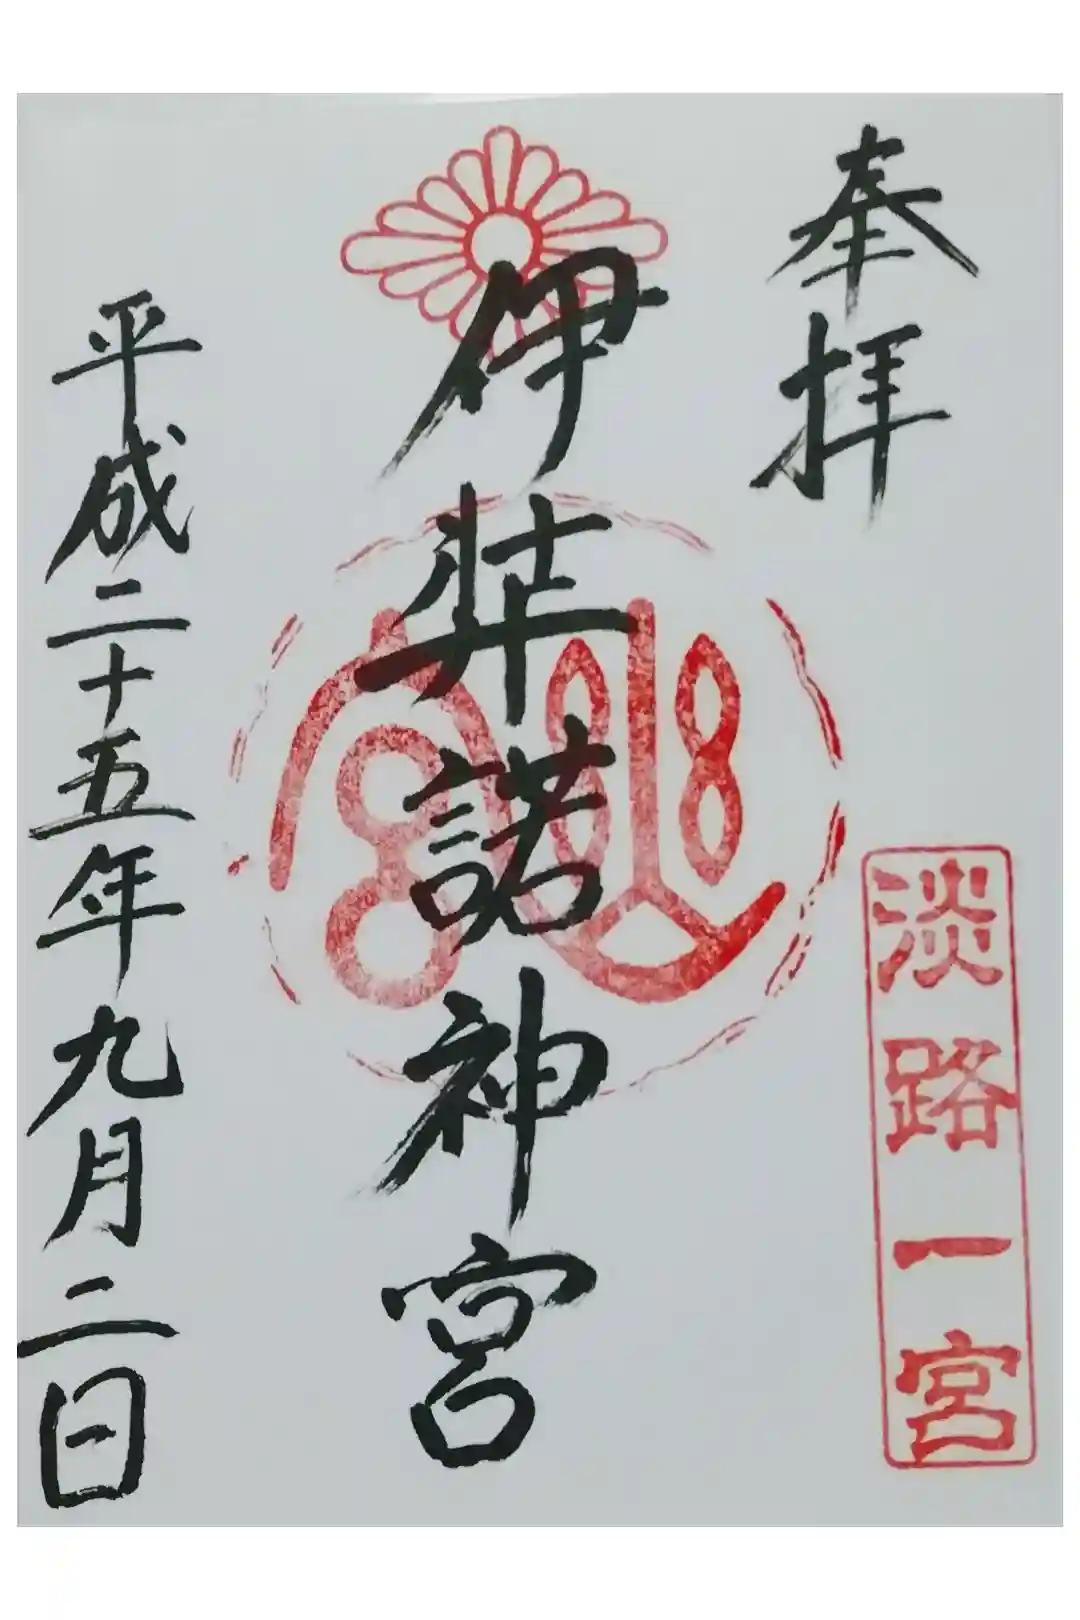 奉拝
淡路一宮
伊弉諾神宮
幽宮
平成二十五年九月二日